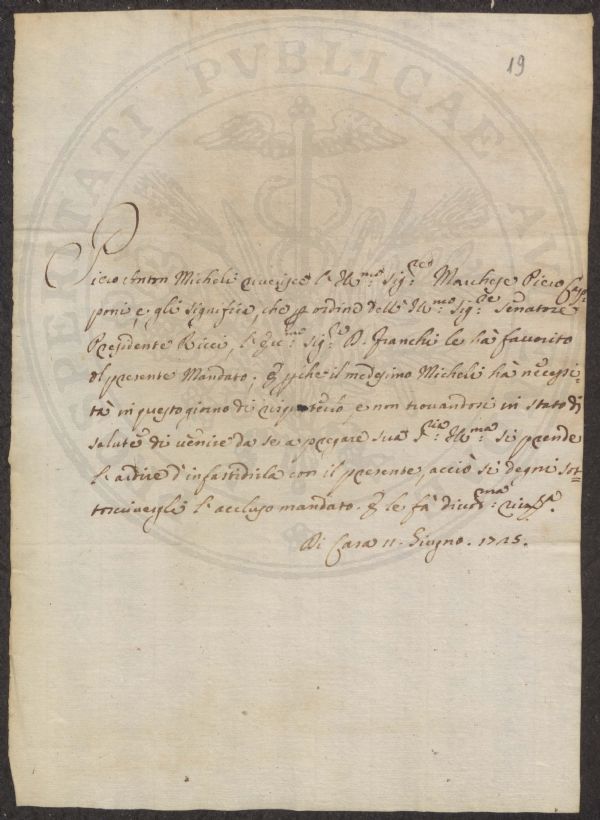 19
Piero Anton Micheli riverisce l'Ill.mo Sig.re Marchese Piero Cap-
poni, e gli significa, che p ordine dell' Ill.mo Sig.re Senatore
Presidente Ricci, l'Ecc.mo Sig.re D. Franchi le hà favorito
il presente Mandato. E pche il medesimo Micheli hà necessi-
tà in questo giorno di e non trovandosi in stato di
salute di venire da se a pregare sua S.ria Ill.ma si prende
l'ardire d'infastidirla con il presente, acciò si degni sot-
toscrivergli l'accluso mandato. E le fà
Di Casa 11. Giugno. 1725.
PVBLICAE